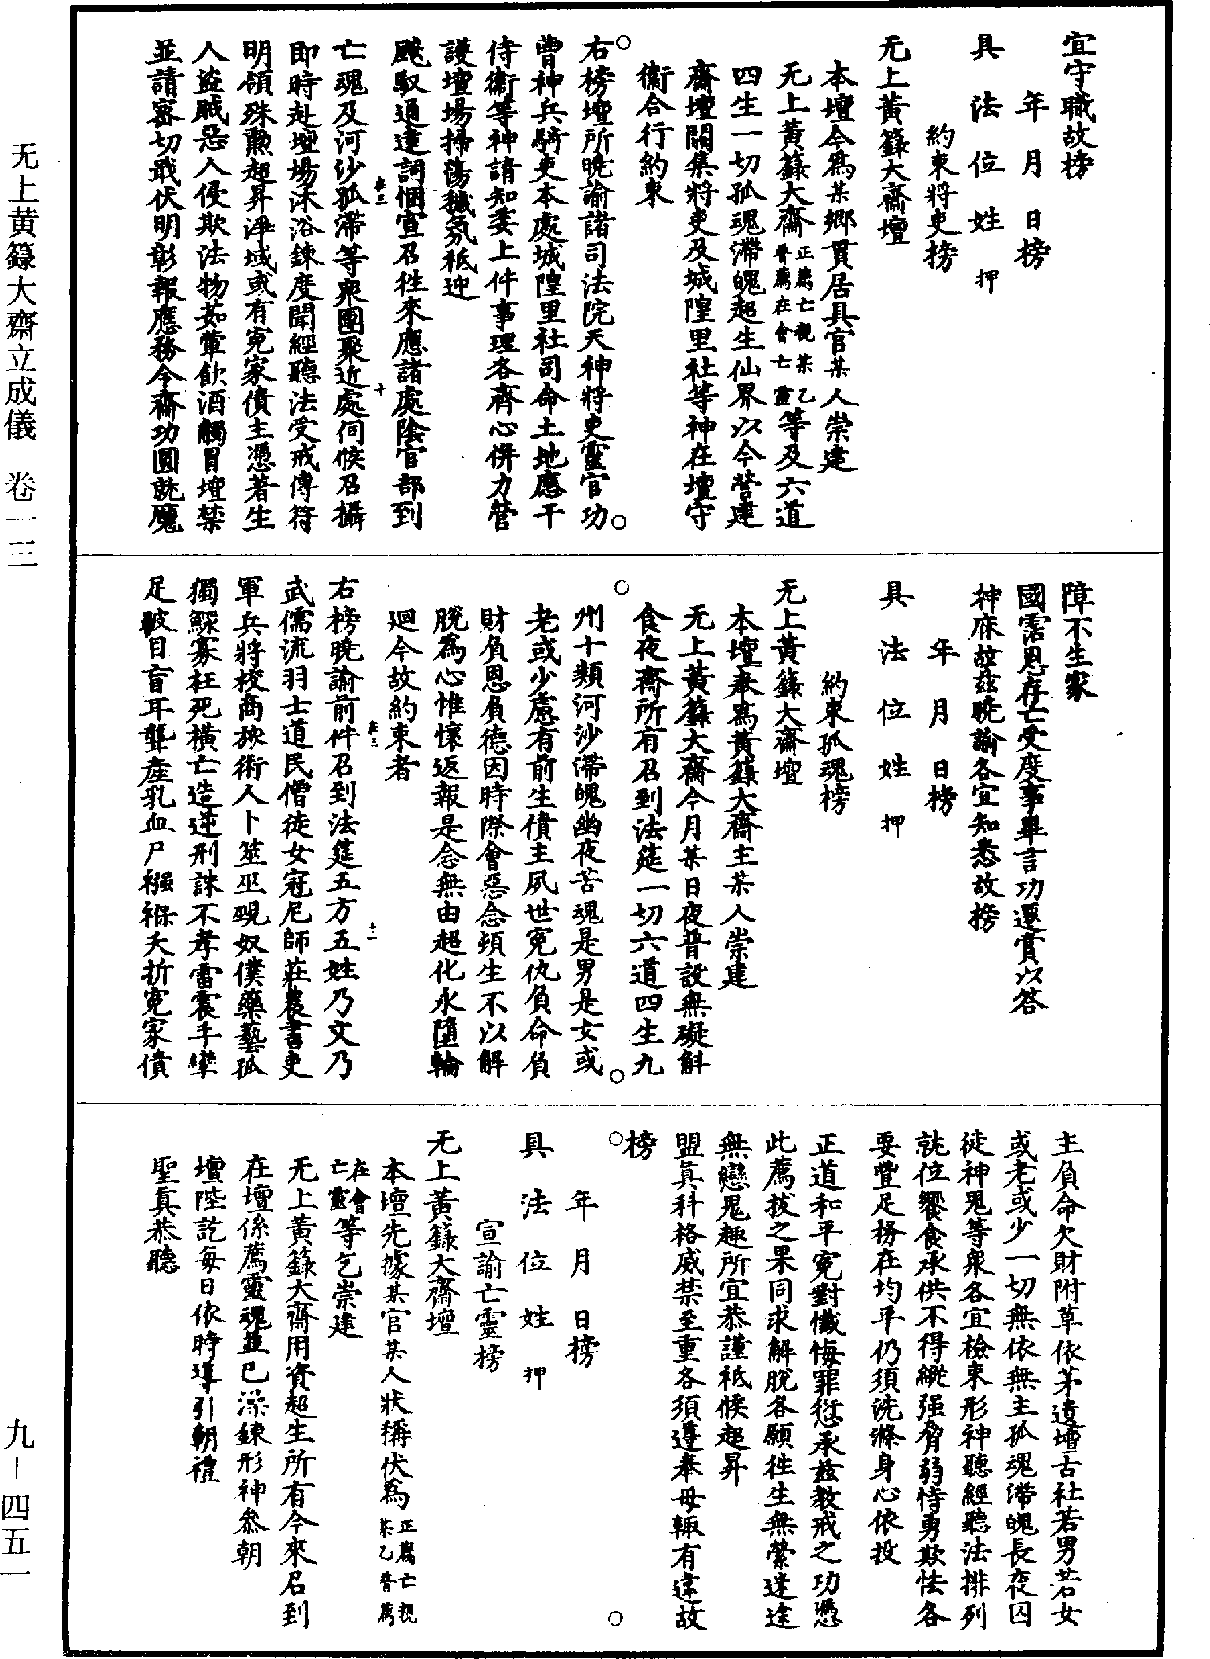 宜守職故榜
年月日榜
具法位姓押
約束將吏榜
无上黃籙大齋壇
本壇今為某鄉貫居具官某人崇建
无上黃籙大齋正薦亡親某乙普薦在會亡靈等及六道
四生一切孤魂滯魄超生仙界以今營建
齋壇關集將吏及城隍里社等神在壇守
衛合行約束
右榜壇所曉諭諸司法院天神將吏靈官功
曹神兵騎吏本處城隍里社司命土地應干
侍衛等神請知委上件事理各齊心併力營
護壇場掃蕩穢氛祗迎
飈馭通達詞悃宣召往來應諸處陰官部到
亡魂及河沙孤滯等衆團聚近處伺候召攝
即時赴壇場沐浴鍊度聞經聽法受戒傳符
明領殊勳超昇淨域或有冤家債主憑著生
人盜賊惡人侵欺法物茹葷飲酒觸冒壇禁
並請密切戢伏明彰報應務令齋功圓就魔
障不生家
國霑恩存亡受度事畢言功遷賞以答
神庥故茲曉諭各宜知悉故榜
年月日榜
具法位姓押
約束孤魂榜
无上黃籙大齋壇
本壇奉為黃籙大齋主某人崇建
无上黃籙大齋今月某日夜普設無礙斛
食夜齋所有召到法筵一切六道四生九
州十類河沙滯魄幽夜苦魂是男是女或
老或少慮有前生債主夙世冤仇負命負
財負恩負德因時際會惡念頓生不以解
脫為心惟懷返報是念無由超化永墮輪
迴今故約束者
右榜曉諭前件召到法筵五方五姓乃文乃
武儒流羽士道民僧徒女冠尼師莊農書吏
軍兵將校商旅術人卜筮巫覡奴僕藥藝孤
獨鰥寡枉死橫亡造逆刑誅不孝雷震手攣
足跛目盲耳聾產乳血尸襁褓夭折冤家債
主負命欠財附草依茅遺壇古社若男若女
或老或少一切無依無主孤魂滯魄長夜囚
徒神鬼等衆各宜檢束形神聽經聽法排列
就位饗食承供不得縱强脅弱恃勇欺怯各
要豐足務在均平仍須洗滌身心依投
正道和平冤對懺悔罪愆承茲教戒之功憑
此薦拔之果同求解脫各願往生無縈迷途
無戀鬼趣所宜恭謹祗候超昇
盟真科格威禁至重各須遵奉毋輒有違故
榜
年月日榜
具法位姓押
宣諭亡靈榜
无上黃籙大齋壇
本壇先據某官某人狀稱伏為正薦亡親某乙普薦
在會亡靈等乞崇建
无上黃籙大齋用資超生所有今來召到
在壇係薦靈魂並已澡鍊形神叅朝
壇陛訖每日依時導引朝禮
聖真恭聽
无上黄籙大齋立成儀 卷一三
九－四五一